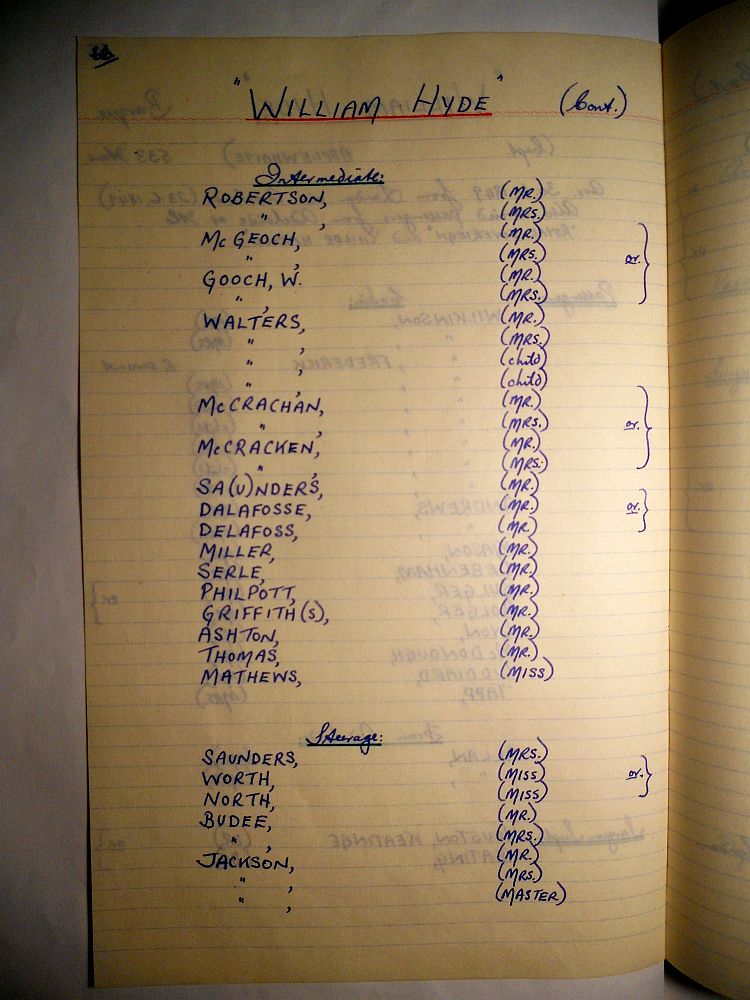 "WILLIAM HYDE" (Cont.)
Intermediate:
ROBERTSON, (MR.)
" , (MRS.)
McGEOCH, (MR.)
" , (MRS.) or.
GOOCH, W. (MR.)
" , (MRS.)
WALTERS, (MR.)
" , (MRS.)
" , (child)
" , (child)
McCRACHAN, (MR.)
" , (MRS.) or.
McCRACKEN, (MR.)
" , (MRS.)
SA(U)NDERS, (MR.)
DALAFOSSE, (MR.) or.
DELAFOSS, (MR.)
MILLER, (MR.)
SERLE, (MR.)
PHILPOTT, (MR.)
GRIFFITH(S), (MR.)
ASHTON, (MR.)
THOMAS, (MR.)
MATHEWS, (MISS)
Steerage:
SAUNDERS, (MRS.)
WORTH, (MISS) or.
NORTH, (MISS)
BUDEE, (MR.)
" , (MRS.)
JACKSON, (MR.)
" , (MRS.)
" , (MASTER)